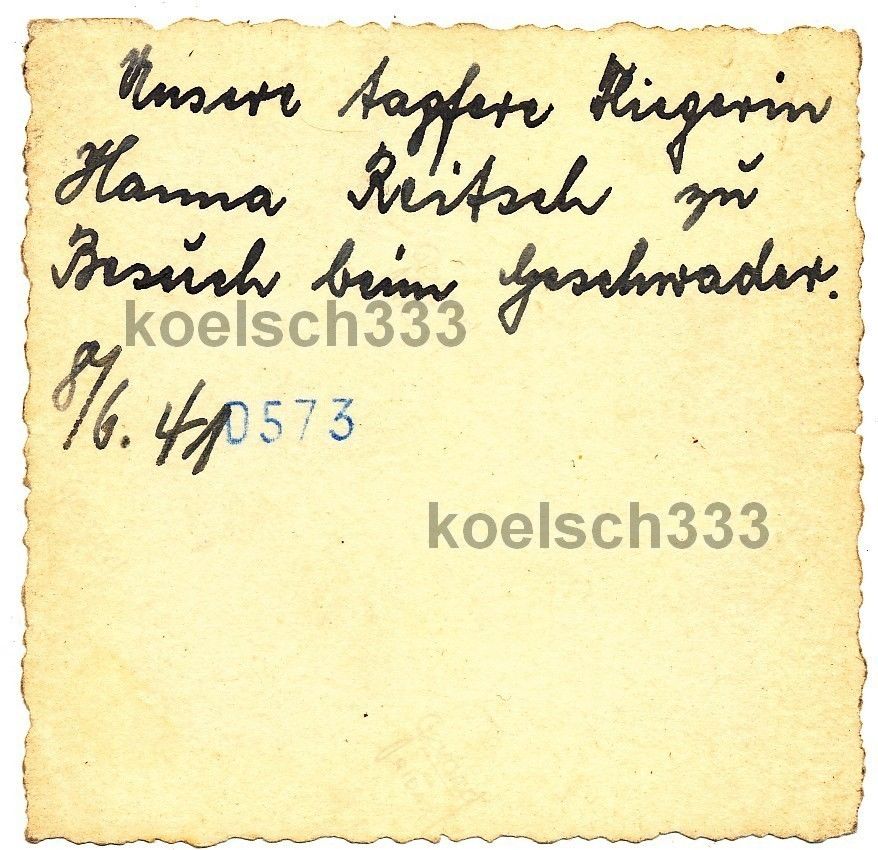 Unsere tapfere Fliegerin
Hanna Reitsch zu
Besuch beim Geschwader.
koelsch333
8/6. 41 0573
koelsch333